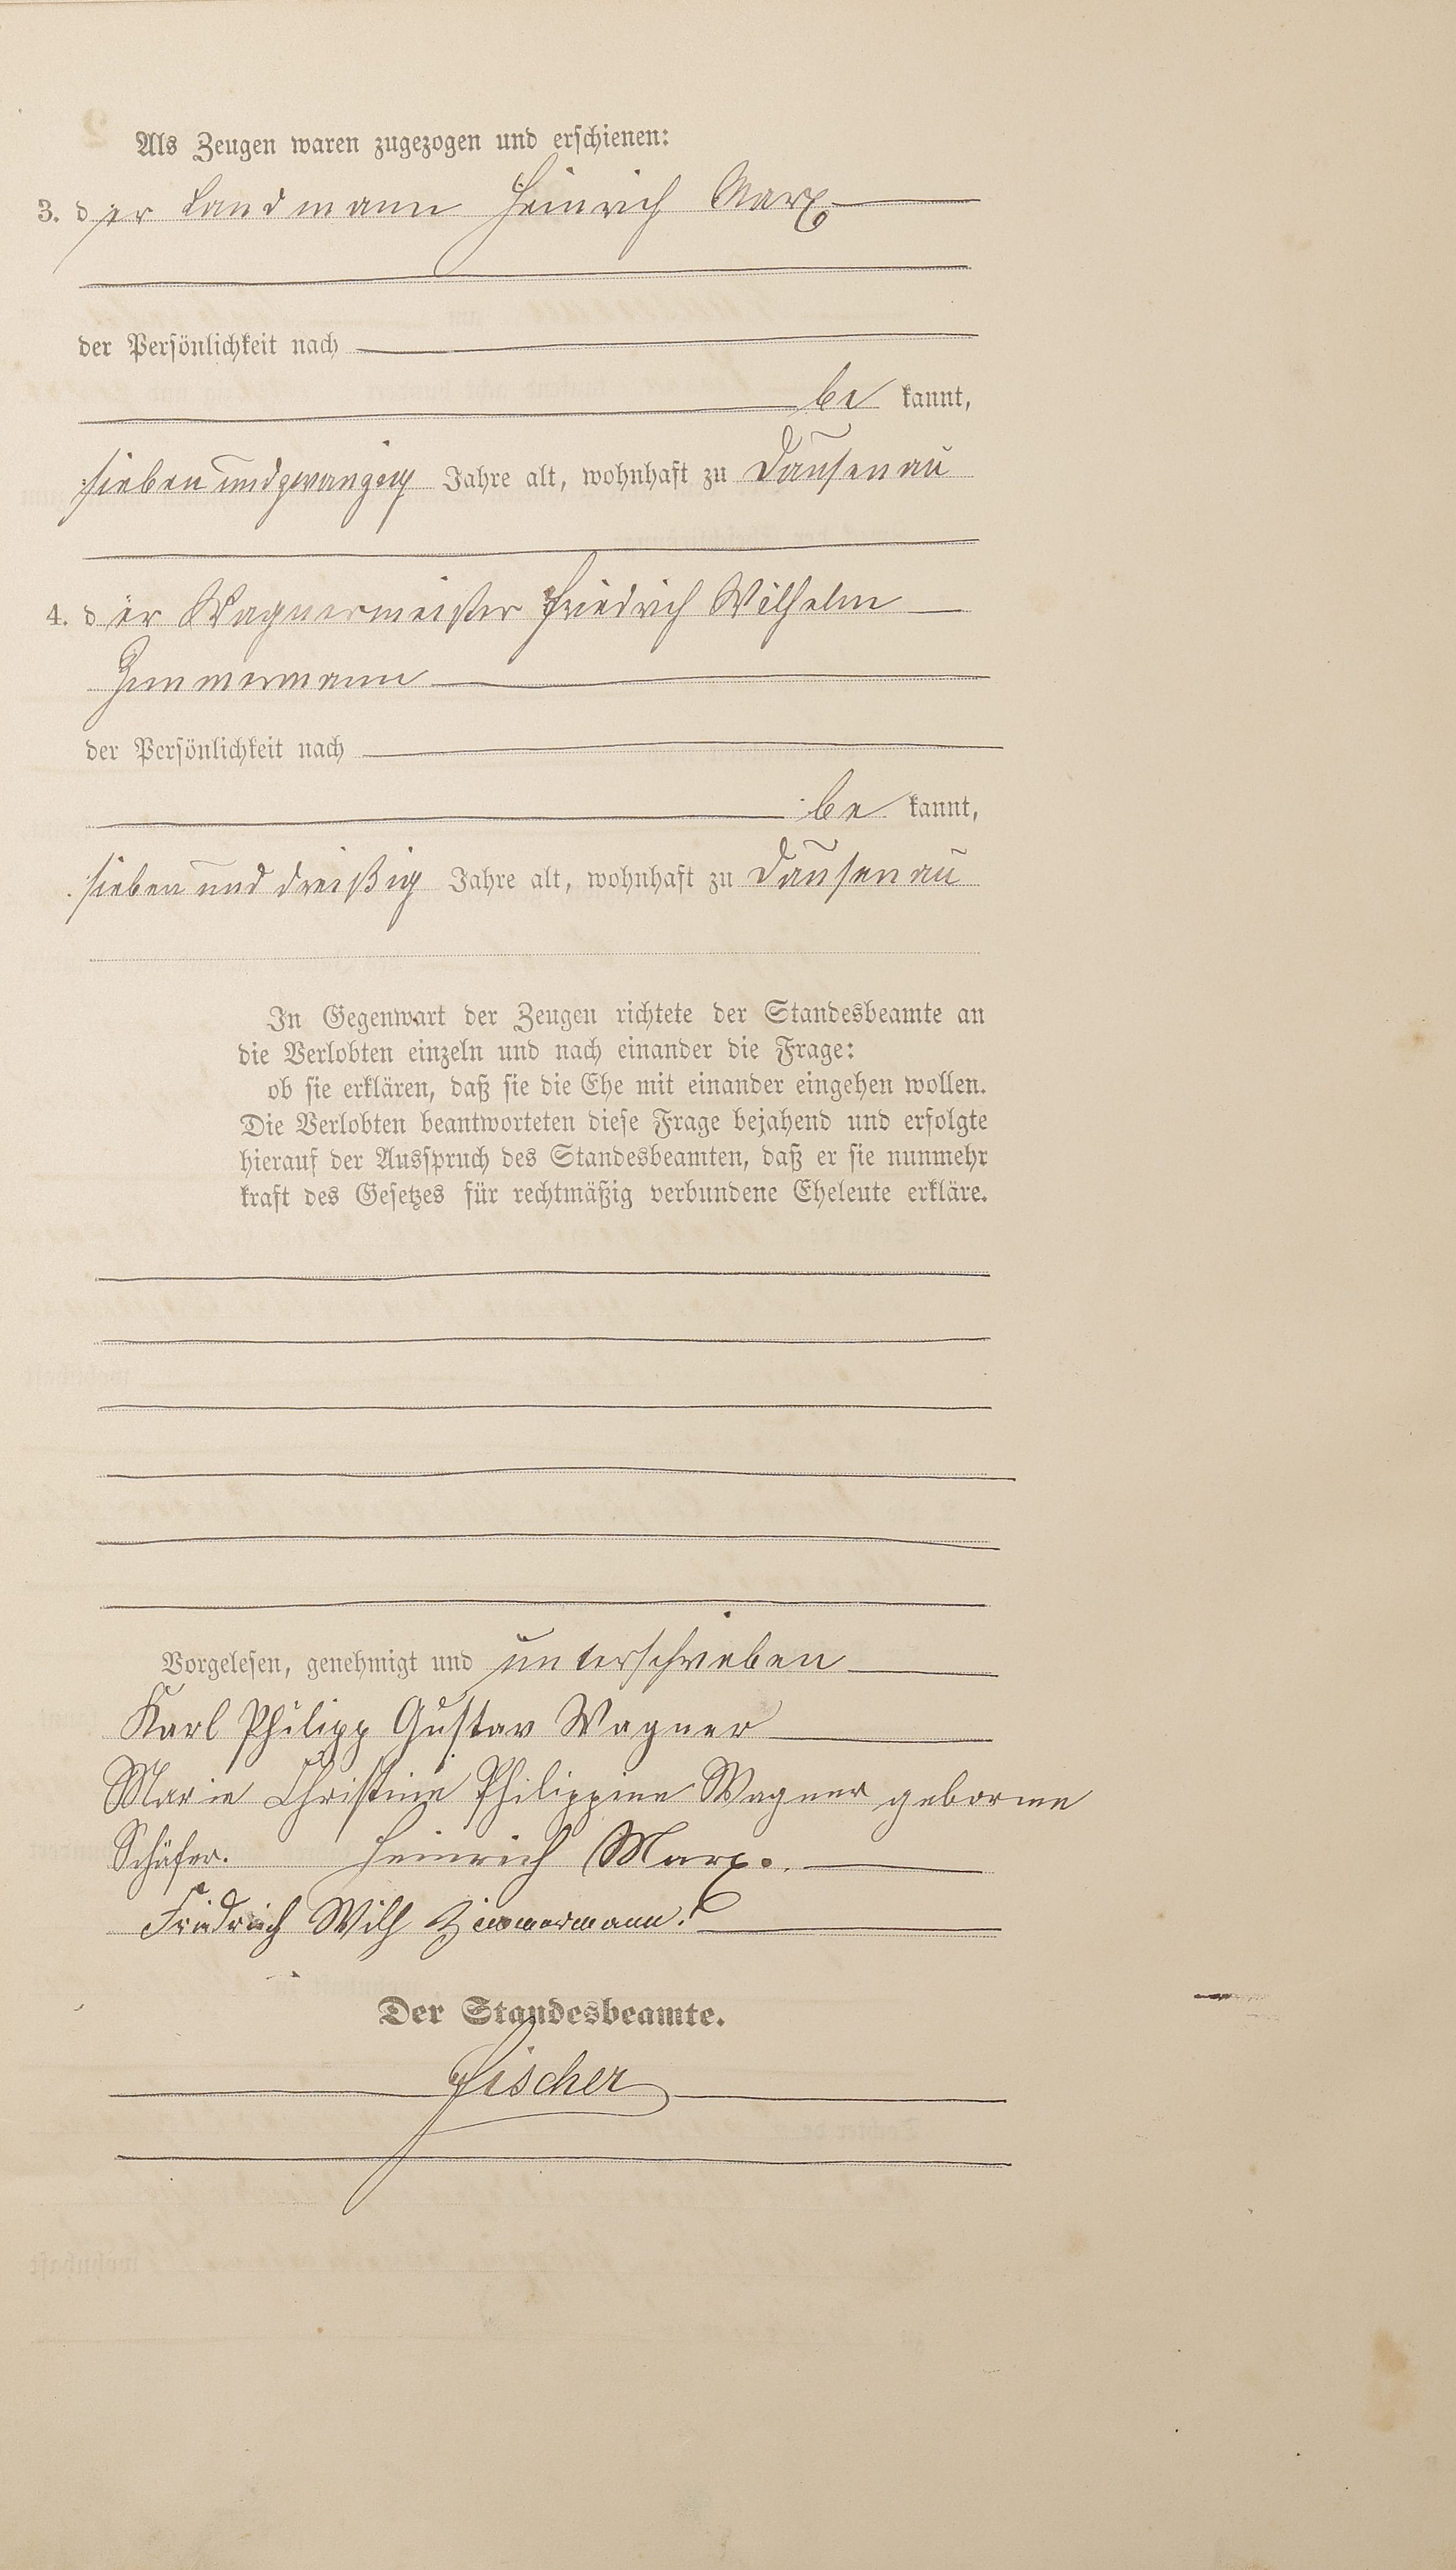 Als Zeugen waren zugezogen und erschienen:
3. der Landmann Heinrich Marx
der Persönlichkeit nach
be kannt,
siebenundzwanzig Jahre alt, wohnhaft zu Dausenau
4. der Wagnermeister Friedrich Wilhelm
Zimmermann
der Persönlichkeit nach
be kannt,
sieben und dreißig Jahre alt, wohnhaft zu Dausenau
In Gegenwart der Zeugen richtete der Standesbeamte an
die Verlobten einzeln und nach einander die Frage:
ob sie erklären, daß sie die Ehe mit einander eingehen wollen.
Die Verlobten beantworteten diese Frage bejahend und erfolgte
hierauf der Ausspruch des Standesbeamten, daß er sie nunmehr
kraft des Gesetzes für rechtmäßig verbundene Eheleute erkläre.
Vorgelesen, genehmigt und unterschrieben
Karl Philipp Gustav Wagner
Marie Christine Philippine Wagner geborene
Schäfer. Heinrich Marx.
Friedrich Wilh Zimmermann.
Der Standesbeamte.
Fischer